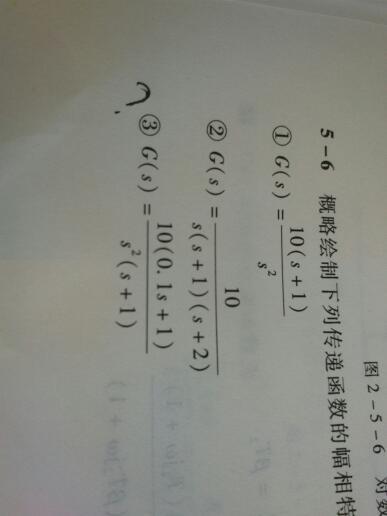 图 2-5-6 对数
5-6 概略绘制下列传递函数的幅相特
① G(s) = 10(s+1) / s²
② G(s) = 10 / s(s+1)(s+2)
③ G(s) = 10(0.1s+1) / s²(s+1)